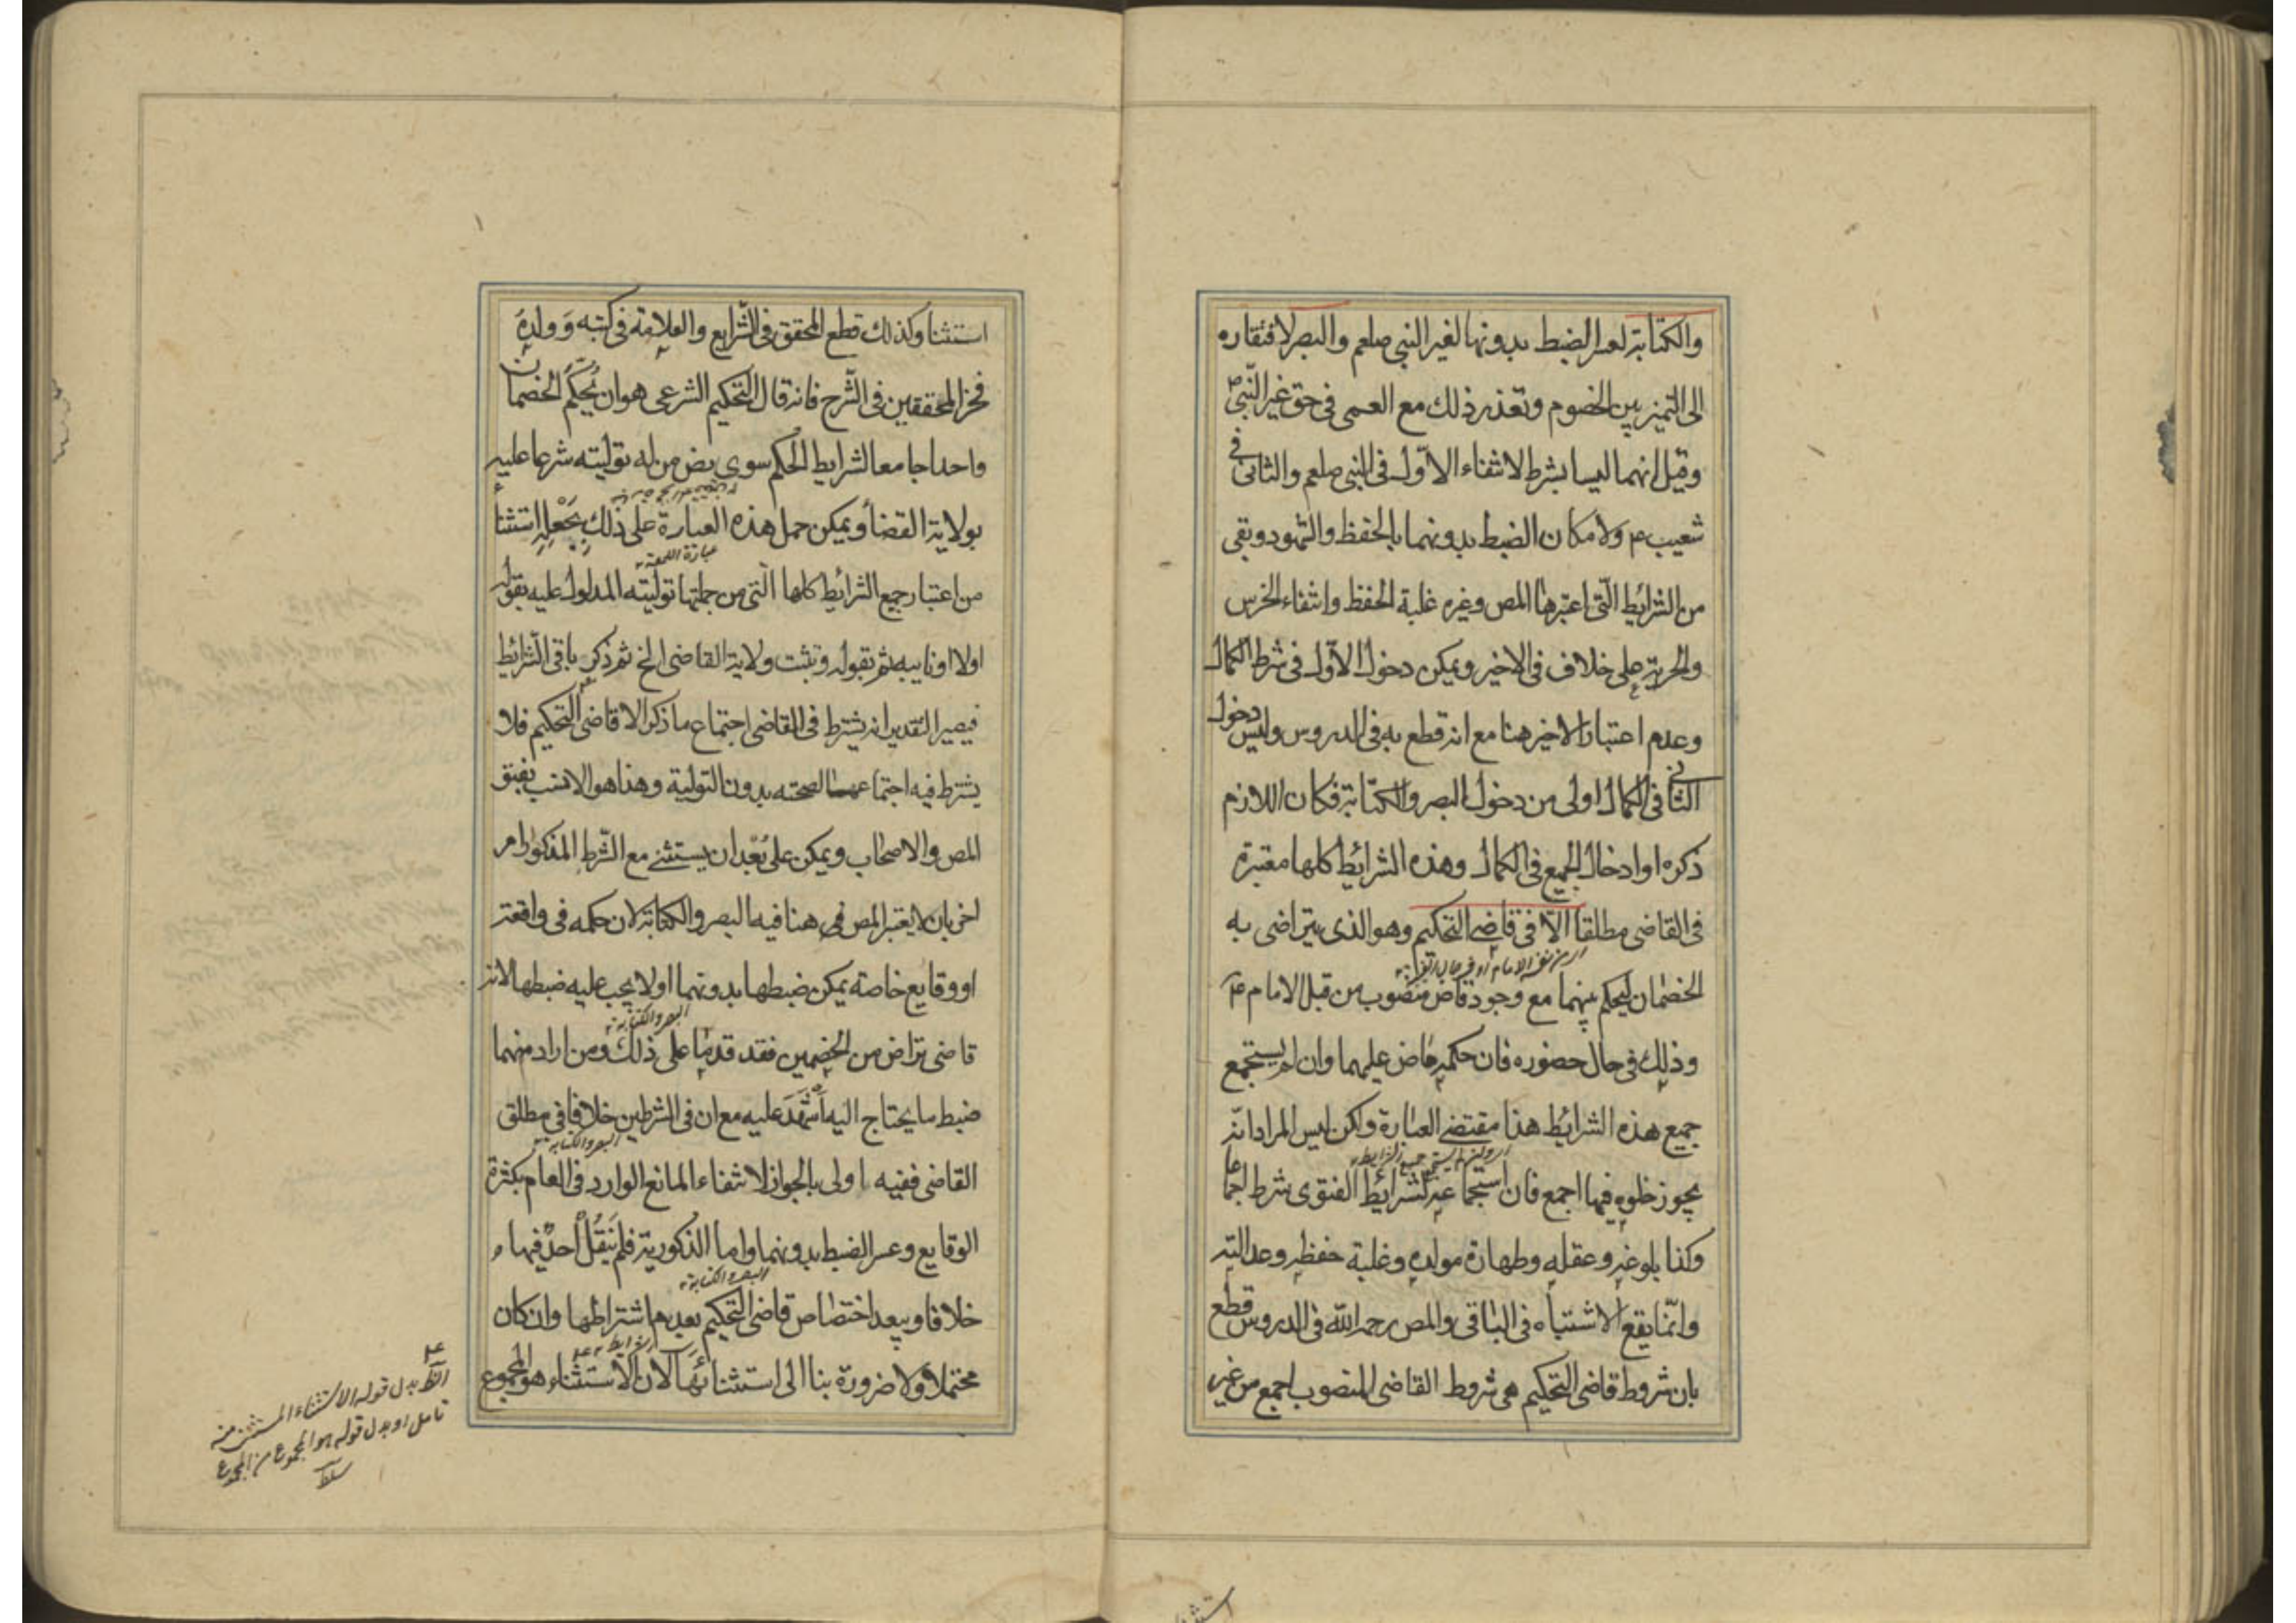 والكتابة لعسر الضبط بدونها لغير النبي صلعم والبصر لافتقاره
الى التميز بين الخصوم وتعذر ذلك مع العمى في حق غير النبي ص
وقيل انهما ليسا بشرط لانتفاء الاول في النبي صلعم والثاني في
شعيب ع ولامكان الضبط بدونهما بالحفظ والشهود وبقى
من الشرائط التي اعتبرها المص وغيره غلبة الحفظ وانتفاء الخرس
والحرية على خلاف في الاخير ويمكن دخول الاول في شرط الكمال
وعدم اعتبار الاخير هنا مع انه قطع به في الدروس وليس دخول
الثاني في الكمال اولى من دخول البصر والكتابة فكان اللازم
ذكره او ادخال الجميع في الكمال وهذه الشرائط كلها معتبرة
في القاضي مطلقا الا في قاضي التحكيم وهو الذي يتراضى به
الخصمان ليحكم بينهما مع وجود قاض منصوب من قبل الامام ع
وذلك في حال حضوره فان حكمه ماض عليهما وان لم يستجمع
جميع هذه الشرائط هذا مقتضى العبارة ولكن ليس المراد انه
اي وان لم يستجمع جميع الشرايط
يجوز خلوه فيها اجمع فان استجماعه لشرائط الفتوى شرط اجماعا
وكذا بلوغه وعقله وطهارة مولده وغلبة حفظه وعدالته
وانما يقع الاشتباه في الباقي والمص رحمه الله في الدروس قطع
بان شروط قاضي التحكيم هي شروط القاضي المنصوب اجمع من غير
استثنا وكذلك قطع المحقق في الشرايع والعلامة في كتبه وولده
فخر المحققين في الشرح فانه قال التحكيم الشرعي هو ان يحكم الخصمان
واحدا جامعا لشرايط الحكم سوى نص من له توليته شرعا عليه
بولاية القضاء ويمكن حمل هذه العبارة على ذلك بجعله استثناء
عبارة اللمعة
من اعتبار جميع الشرائط كلها التي من جملتها توليته المدلول عليه بقوله
اولا او نايبه ثم بقوله وتثبت ولاية القاضي الخ ثم ذكر باقي الشرائط
فيصير التقدير انه يشترط في القاضي اجتماع ما ذكر الا قاضي التحكيم فلا
يشترط فيه اجتماعها لصحته بدون التولية وهذا هو الانسب بفتوى
المص والاصحاب ويمكن على بعد ان يستثنى مع الشرط المذكور امر
اخر بان لا يعتبر المص هنا فيه البصر والكتابة لان حكمه في واقعة
او وقايع خاصة يمكن ضبطها بدونهما او لا يجب عليه ضبطها لانه
البصر والكتابة
قاضي تراض من الخصمين فقد قدما على ذلك ومن اراد منهما
ضبط ما يحتاج اليه اشهد عليه مع ان في الشرطين خلافا في مطلق
البصر والكتابة
القاضي ففيه اولى بالجواز لانتفاء المانع الوارد في العام بكثرة
الوقايع وعسر الضبط بدونهما واما الذكورية فلم ينقل احد فيها
البصر والكتابة
خلافا ويبعد اختصاص قاضي التحكيم بعدم اشتراطها وان كان
محتملا ولا ضرورة بنا الى استثنائها لان الاستثناء هو المجموع
الظ بدل قوله الاستثناء المستثنى منه
تامل او بدل قوله هو المجموع من المجموع